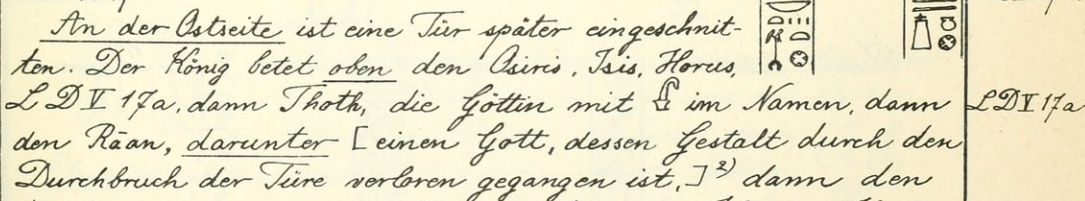 An der Ostseite ist eine Tür später eingeschnit-
ten. Der König betet oben den Osiris, Isis, Horus,
L D V 17a, dann Thoth, die Göttin mit im Namen, dann
L D V 17a
den Rāan, darunter [einen Gott, dessen Gestalt durch den
Durchbruch der Türe verloren gegangen ist,]²⁾ dann den